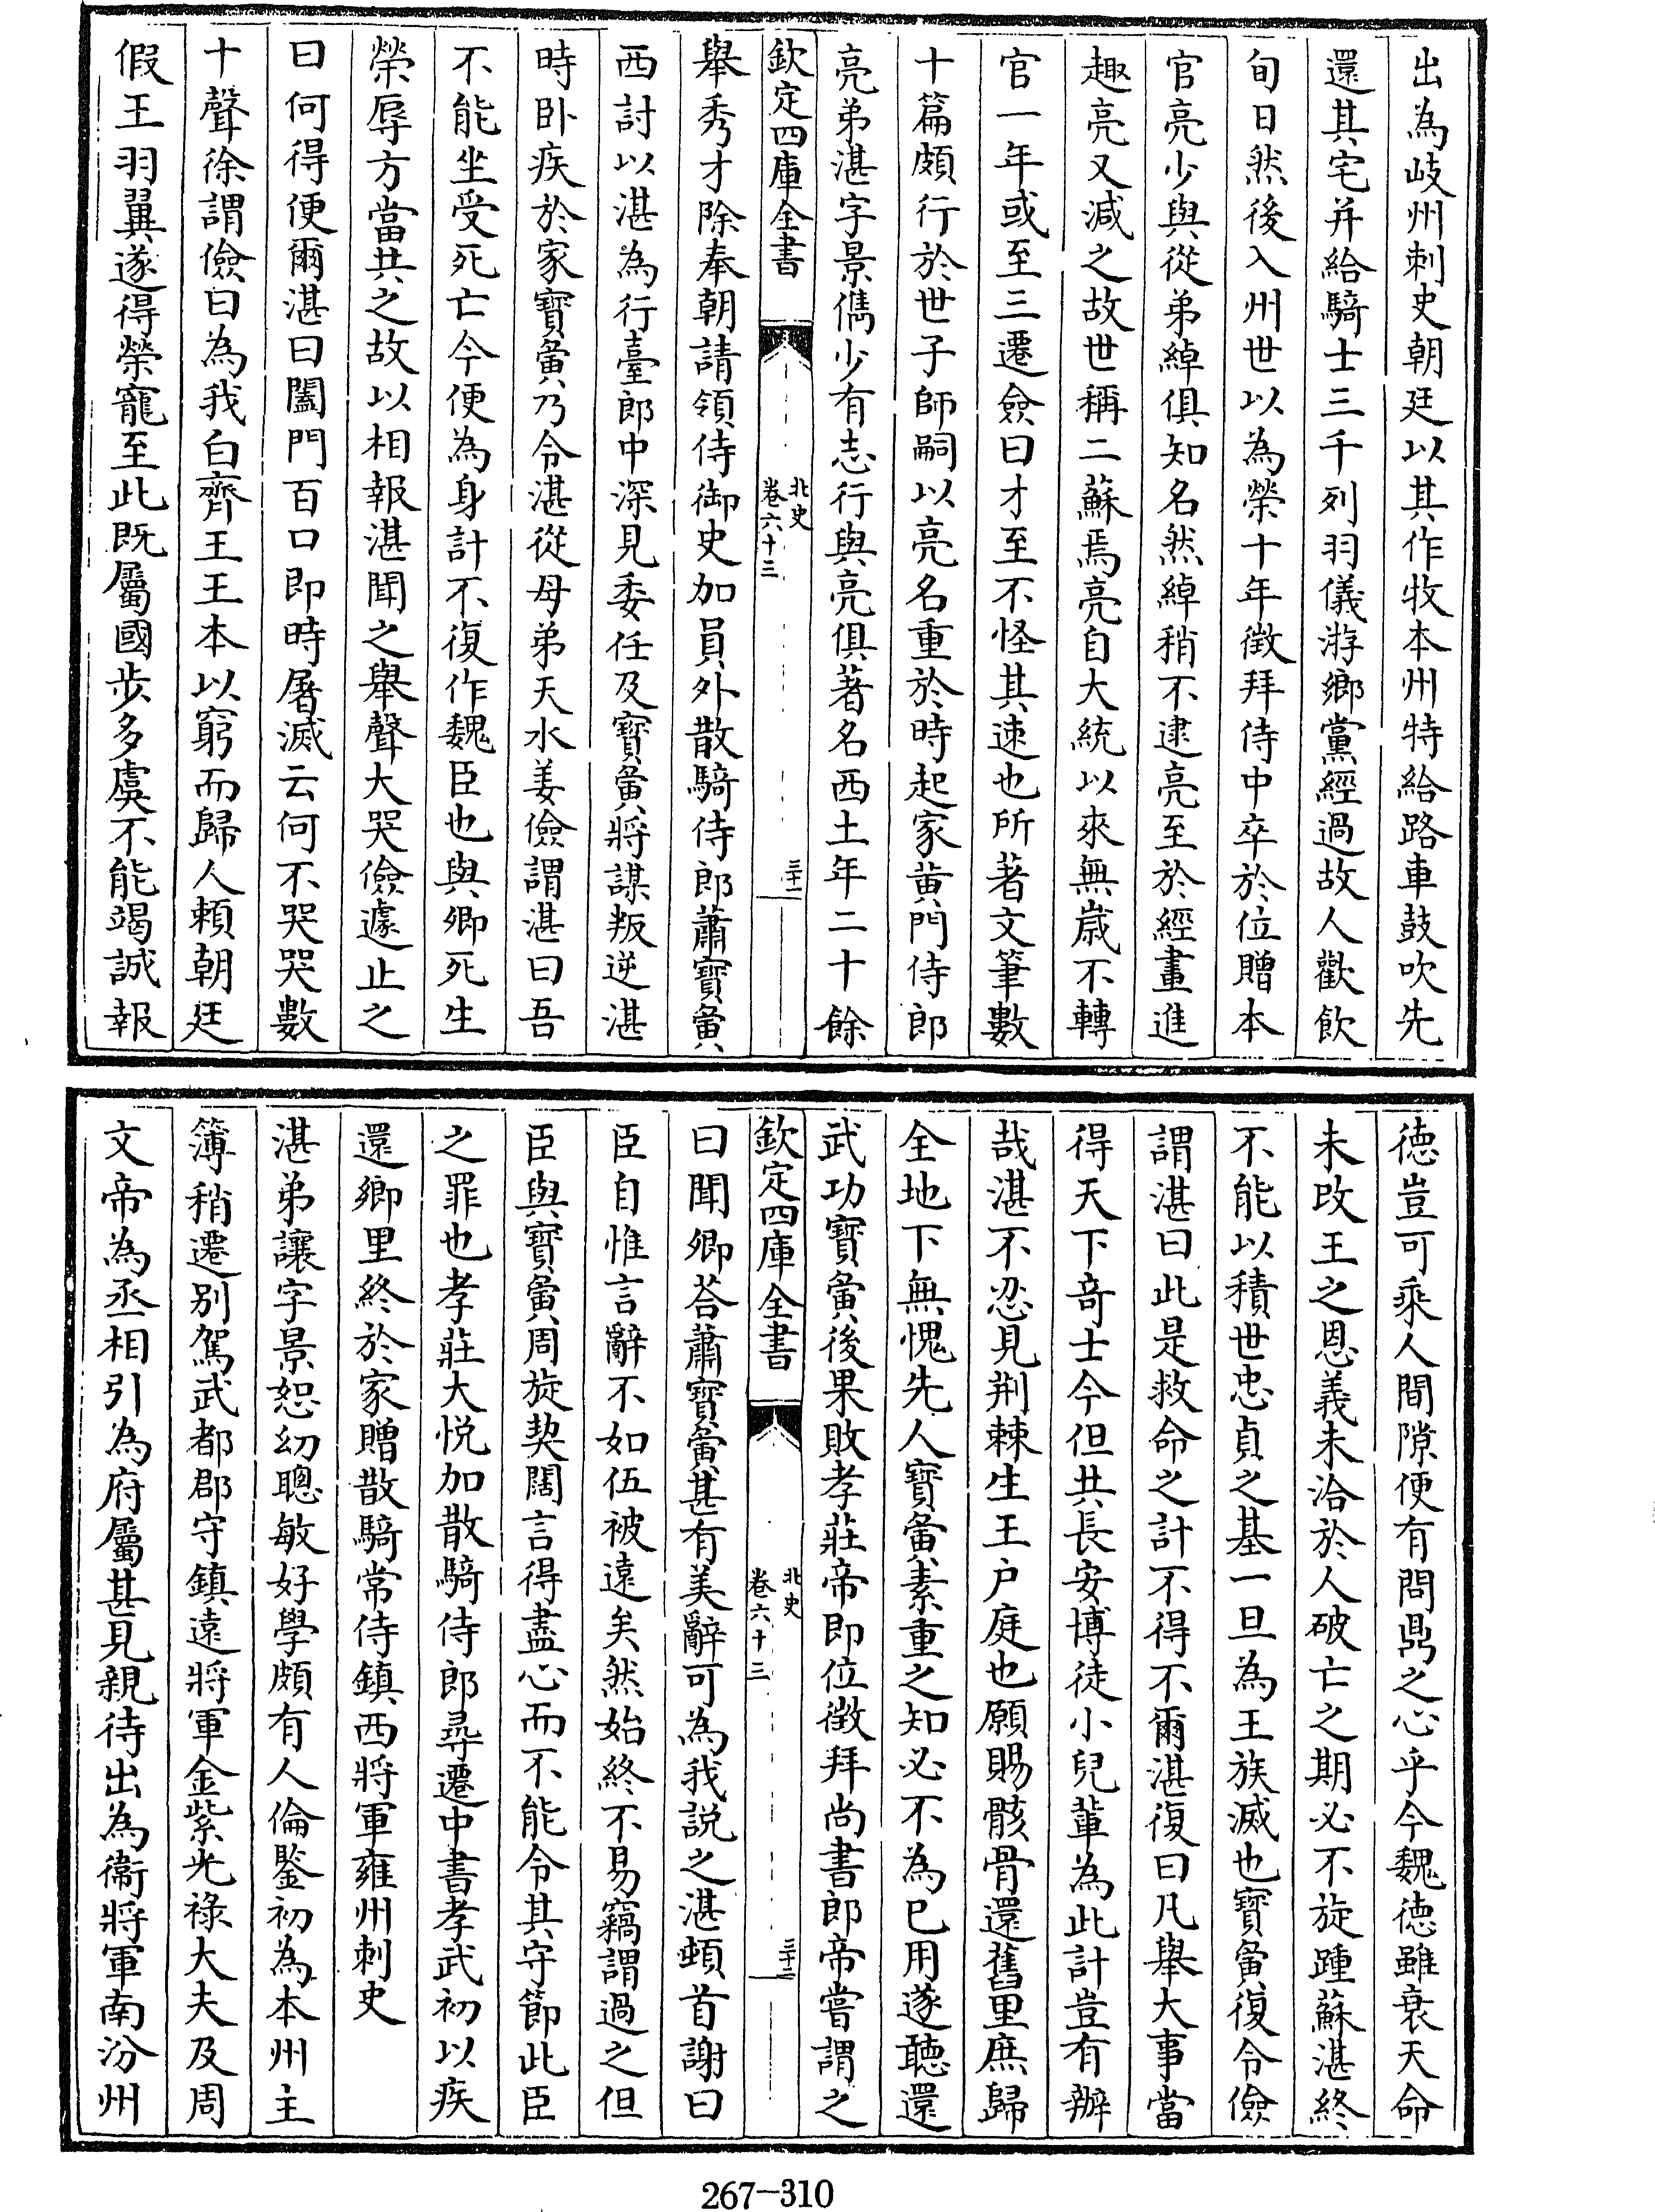 出為岐州刺史朝廷以其作牧本州特給路車鼓吹先
還其宅并給騎士三千列羽儀游鄉黨經過故人歡飲
旬日然後入州世以為榮十年徵拜侍中卒於位贈本
官亮少與從弟綽俱知名然綽稍不逮亮至於經畫進
趣亮又減之故世稱二蘇焉亮自大統以來無歲不轉
官一年或至三遷僉曰才至不怪其速也所著文筆數
十篇頗行於世子師嗣以亮名重於時起家黃門侍郎
亮弟湛字景儁少有志行與亮俱著名西土年二十餘
欽定四庫全書
北史
卷六十三
三十一
舉秀才除奉朝請領侍御史加員外散騎侍郎蕭寶夤
西討以湛為行臺郎中深見委任及寶夤將謀叛逆湛
時卧疾於家寶夤乃令湛從母弟天水姜儉謂湛曰吾
不能坐受死亡今便為身計不復作魏臣也與卿死生
榮辱方當共之故以相報湛聞之舉聲大哭儉遽止之
曰何得便爾湛曰闔門百口即時屠滅云何不哭哭數
十聲徐謂儉曰為我白齊王王本以窮而歸人賴朝廷
假王羽翼遂得榮寵至此既屬國步多虞不能竭誠報
德豈可乘人間隙便有問鼎之心乎今魏德雖衰天命
未改王之恩義未洽於人破亡之期必不旋踵蘇湛終
不能以積世忠貞之基一旦為王族滅也寶夤復令儉
謂湛曰此是救命之計不得不爾湛復曰凡舉大事當
得天下奇士今但共長安博徒小兒輩為此計豈有辦
哉湛不忍見荆棘生王户庭也願賜骸骨還舊里庶歸
全地下無愧先人寶夤素重之知必不為已用遂聽還
武功寶夤後果敗孝莊帝即位徵拜尚書郎帝嘗謂之
欽定四庫全書
北史
卷六十三
三十二
曰聞卿荅蕭寶夤甚有美辭可為我說之湛頓首謝曰
臣自惟言辭不如伍被遠矣然始終不易竊謂過之但
臣與寶夤周旋契闊言得盡心而不能令其守節此臣
之罪也孝莊大悅加散騎侍郎尋遷中書孝武初以疾
還鄉里終於家贈散騎常侍鎮西將軍雍州刺史
湛弟讓字景恕幼聰敏好學頗有人倫鑒初為本州主
簿稍遷別駕武都郡守鎮遠將軍金紫光祿大夫及周
文帝為丞相引為府屬甚見親待出為衞將軍南汾州
267-310